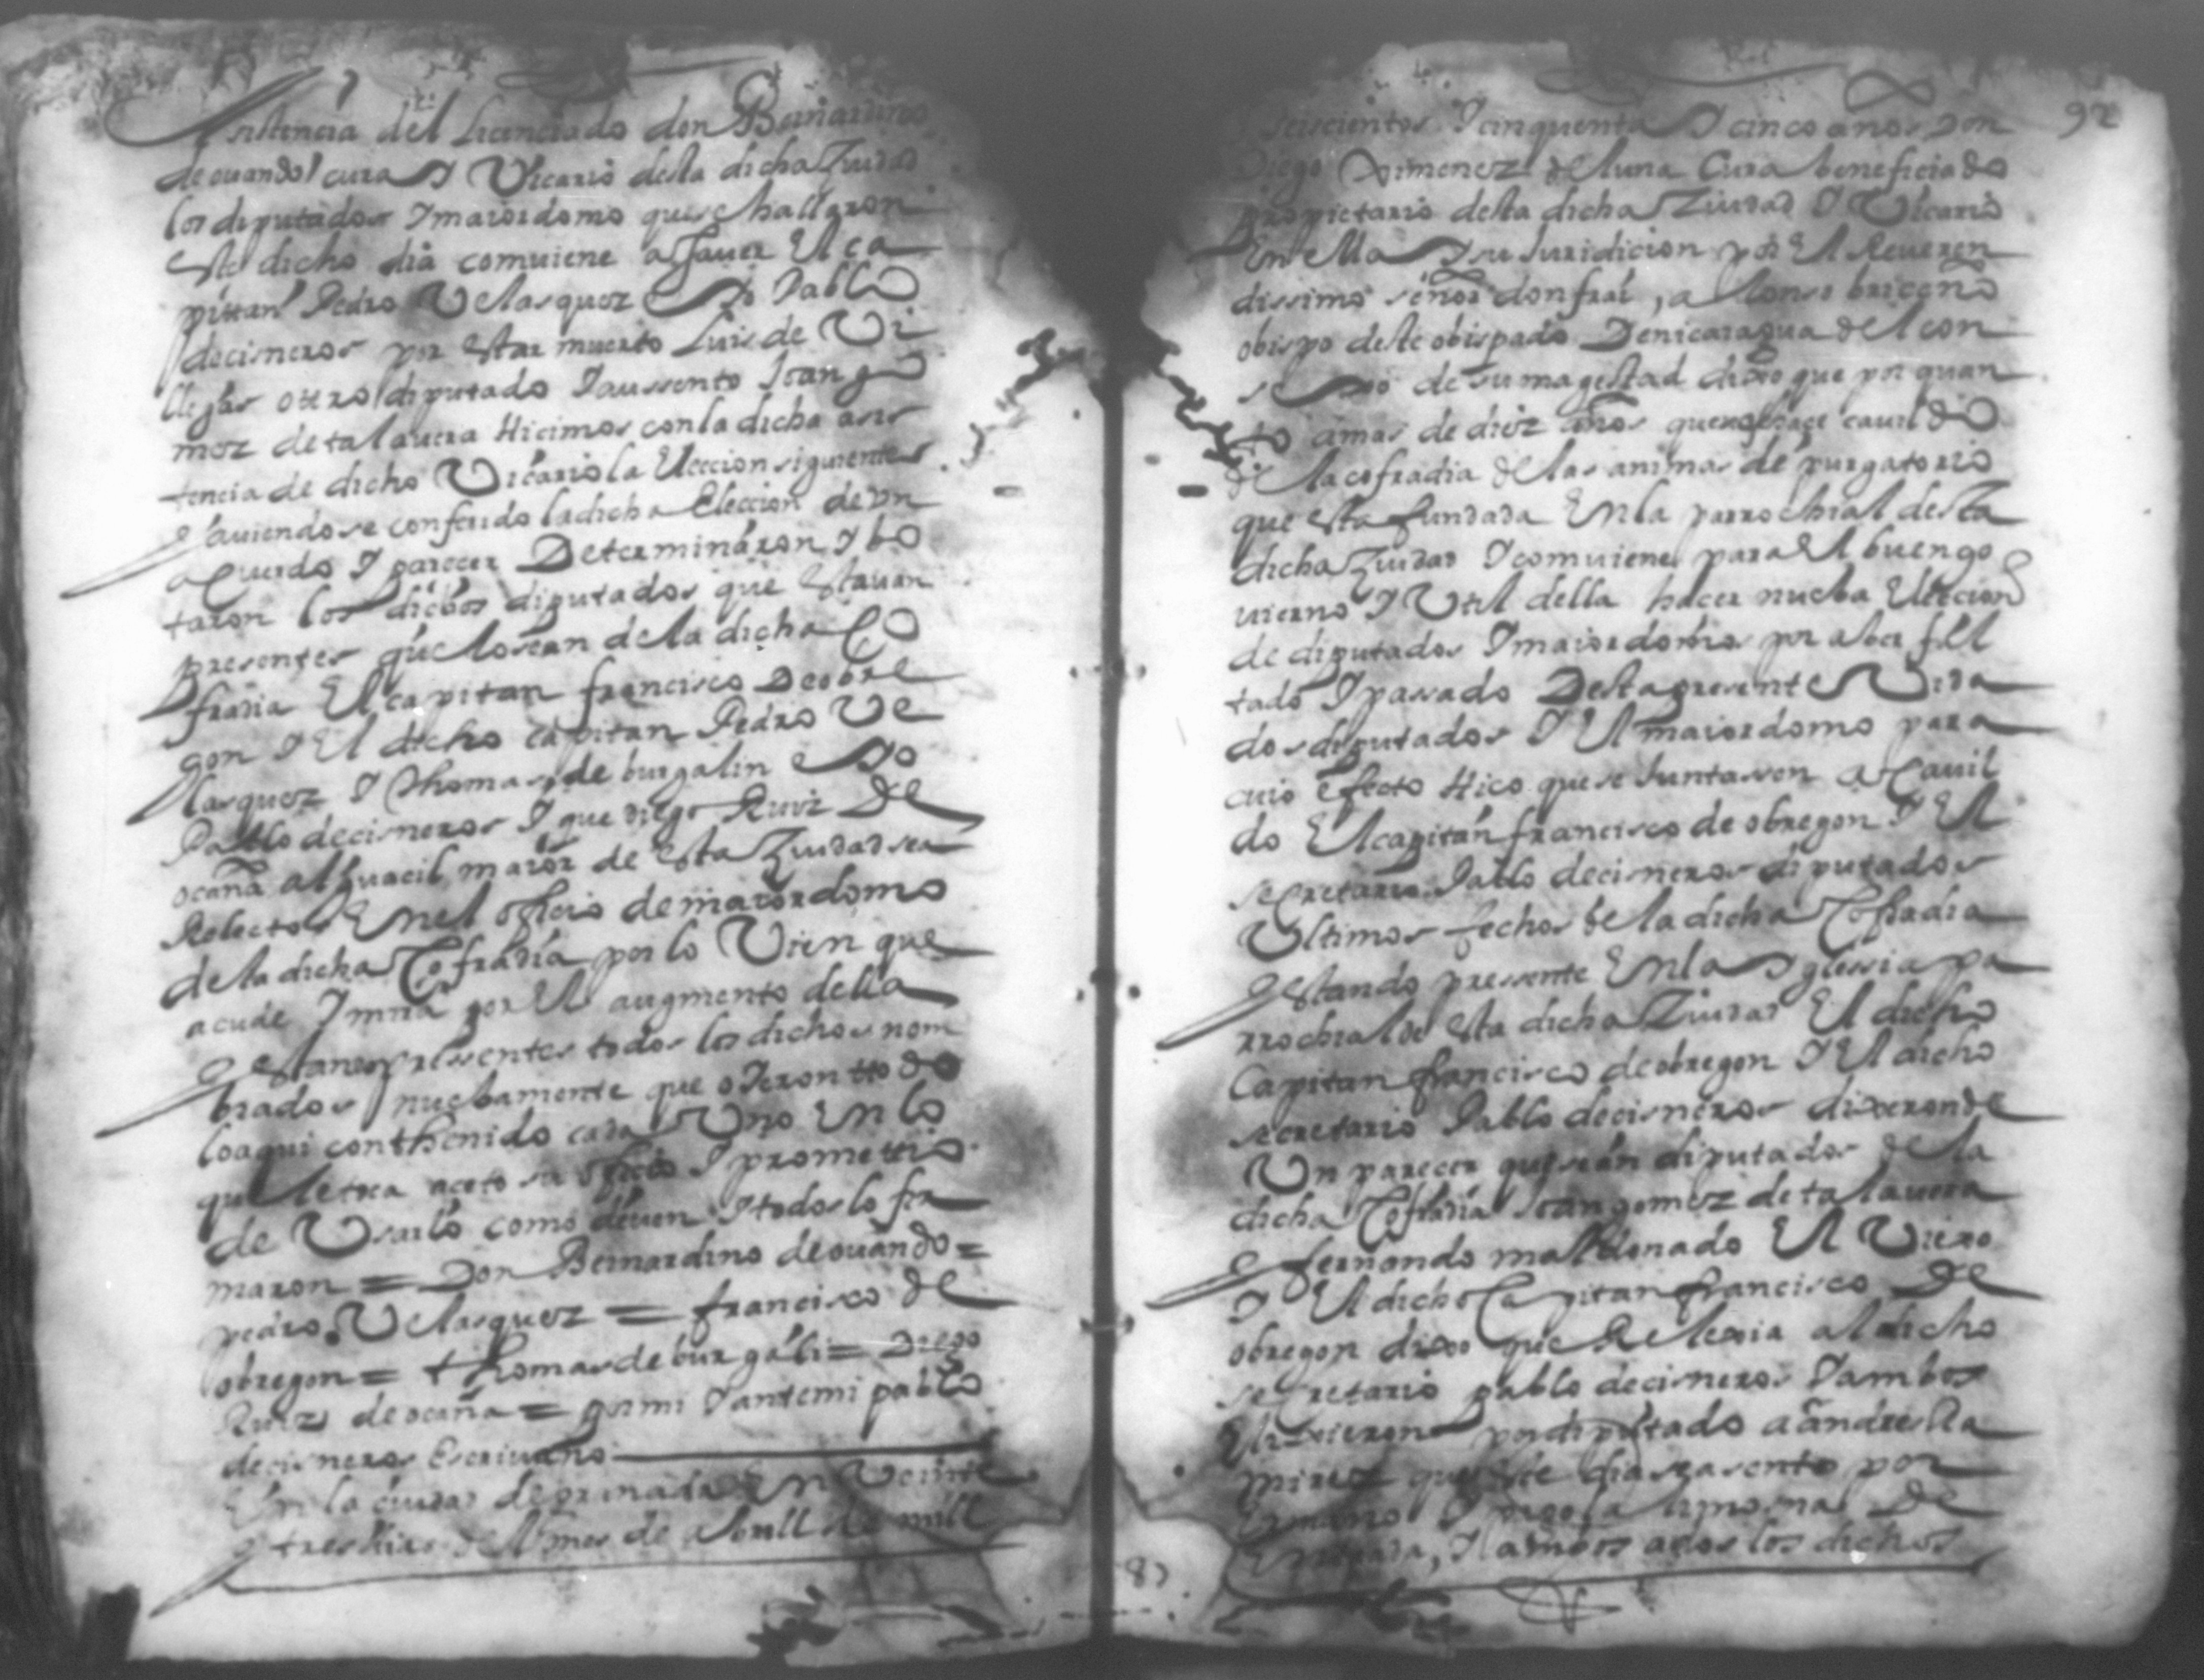 Asistencia del Licenciado don Bernardino
de ouando cura I Vicario desta dicha Ziudad
los diputados I maiordomo que se hallaron
este dicho dia comuiene a sauer El ca
pittan Pedro Velasquez E Io Pablo
decisneros por estar muerto Luis de Vi
llegas otro diputado I aussente Joan go
mez de talauera Hicimos con la dicha asis
tencia de dicho Vicario la Eleccion siguiente
E auiendose conferido la dicha Eleccion de vn
aCuerdo I parecer Determinaron I bo
taron los dichos diputados que estauan
presentes que lo sean de la dicha Co
fradia El capitan francisco De obre
gon I El dicho capitan Pedro Ve
lasquez I Thomas de burgalin E Io
Pablo decisneros I que diego Ruiz De
ocaña alguacil maior de esta Ziudad sea
Relecto En el oficio de maiordomo
de la dicha Cofradia por lo Vien que
acude I mira por El augmento della
E estando pressentes todos los dichos nom
brados nuebamente que oieron ttodo
lo aqui conthenido cada Vno En lo
que le toca aceto su oficio I promettio
de Vsarlo como deuen I todos lo fir
maron = Don Bernardino de ouando =
pedro Velasquez = francisco de
obregon = thomas de burgali = Diego
Ruiz de ocaña = por mi I ante mi pablo
decisneros Escriuano
En la ciudad de granada En Veinte
E tres dias del mes de abrill de mill
92
seiscientos I cinquenta I cinco años Don
Diego Ximenez de luna Cura beneficiado
propietario desta dicha Ziudad I Vicario
En ella I su Juridicion por El Reueren
dissimo señor don frai, alonso briceño
obispo deste obispado De nicaragua del con
sejo de su magestad dixo que por quan
to a mas de diez años que no se hace cauildo
de la cofradia de las animas de purgatorio
que esta fundada En la parrochial desta
dicha Ziudad I comuiene para El buen go
uierno I Vtil della hacer nueba Eleccion
de diputados I maiordomo por aber fal
tado I pasado Desta presente Vida
dos diputados I El maiordomo para
cuio efecto Hico que se Juntassen a Cauil
do El capitan francisco de obregon I El
seCretario Pablo decisneros diputados
Vltimos fechos de la dicha Cofradia
E estando pressente En la Iglessia pa
rrochial de esta dicha Ziudad El dicho
Capitan francisco de obregon I El dicho
secretario Pablo decisneros dixeron de
Vn parecer que sean diputados de la
dicha Cofradia Joan gomez de talauera
E fernando maldonado El Viejo
I El dicho Capitan francisco De
obregon dixo que Relexia al dicho
seCretario pablo decisneros I ambos
Elixieron por diputado a andres Ra
mirez que este dia se asento por
Ermano I pago la limosna De
Entrada, I ambos a dos los dichos